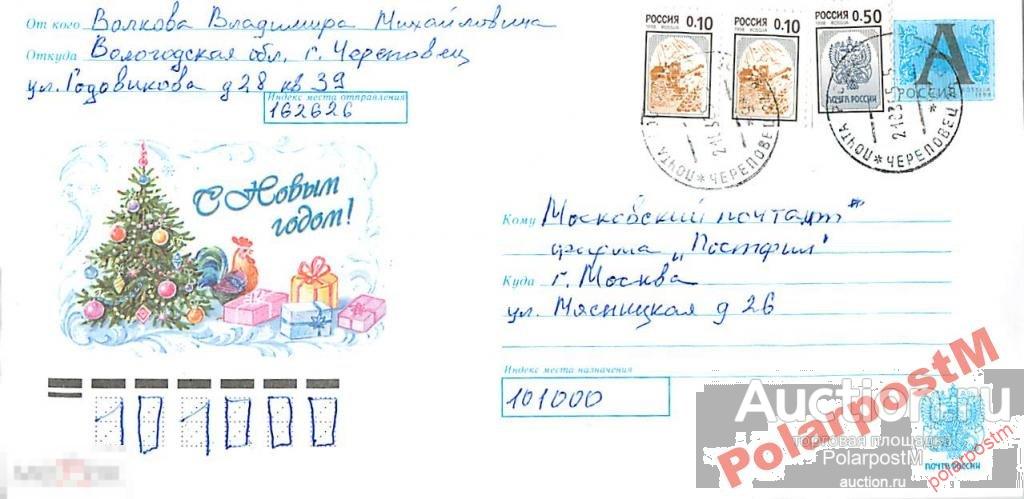 От кого Волкова Владимира Михайловича
Откуда Вологодская обл. г. Череповец
ул. Годовикова д 28 кв 39
Индекс места отправления
162626
РОССИЯ 0.10
1998
РОССИЯ 0.10
1998
РОССИЯ 0.50
1998
ПОЧТА РОССИИ
А
РОССИЯ
ПОЧТА * ЧЕРЕПОВЕЦ
ПОЧТА * ЧЕРЕПОВЕЦ *
С Новым
годом!
Кому Московский почтамт
фирма „Постфил"
Куда г. Москва
ул. Мясницкая д 26
Индекс места назначения
101000
101000
Auction.ru
торговая площадка
PolarpostM
auction.ru
PolarpostM
polarpostm
ПОЧТА РОССИИ